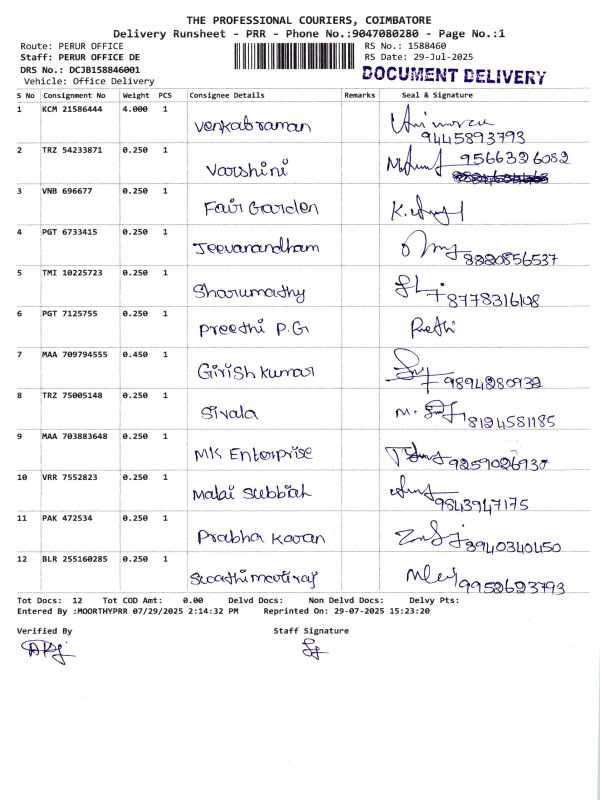 THE PROFESSIONAL COURIERS, COIMBATORE
Delivery Runsheet - PRR - Phone No.:9047080280 - Page No.:1
Route: PERUR OFFICE RS No.: 1588460
Staff: PERUR OFFICE DE RS Date: 29-Jul-2025
DRS No.: DCJB158846001 DOCUMENT DELIVERY
Vehicle: Office Delivery
S No Consignment No Weight PCS Consignee Details Remarks Seal & Signature
1 KCM 21586444 4.000 1 Venkabraman 9445893793
2 TRZ 54233871 0.250 1 Varshini 9566326082
3 VNB 696677 0.250 1 Fair Garden
4 PGT 6733415 0.250 1 Jeevanandham 8220856537
5 TMI 10225723 0.250 1 Sharumathy 8778316108
6 PGT 7125755 0.250 1 Preethi P.G Preethi
7 MAA 709794555 0.450 1 Girish kumar 9894280932
8 TRZ 75005148 0.250 1 Sivala 8124581185
9 MAA 703883648 0.250 1 MK Enterprise 9259026937
10 VRR 7552823 0.250 1 Malai Subbiah 9843947175
11 PAK 472534 0.250 1 Prabha Karan 8940340450
12 BLR 255160285 0.250 1 9952623793
Tot Docs: 12 Tot COD Amt: 0.00 Delvd Docs: Non Delvd Docs: Delvy Pts:
Entered By :MOORTHYPRR 07/29/2025 2:14:32 PM Reprinted On: 29-07-2025 15:23:20
Verified By Staff Signature